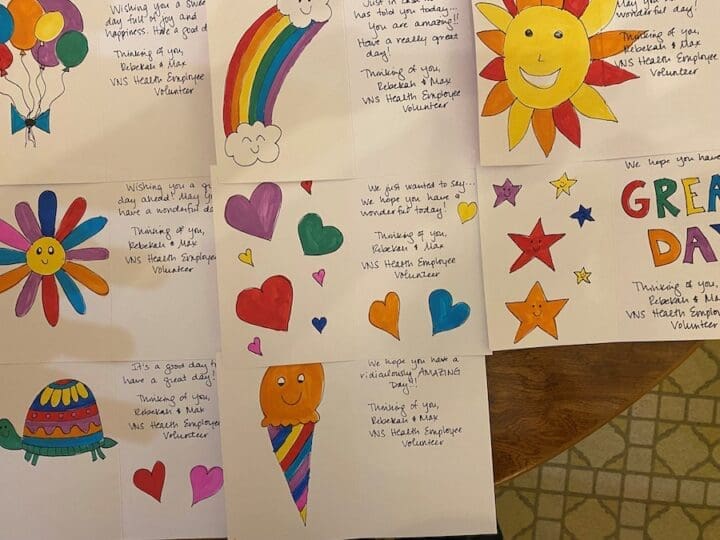 Wishing you a
day full of joy and
happiness. Have a good d
Thinking of you,
Rebekah & Max
VNS Health Employee
Volunteer
Just in case
has told you today...
You are amazing!!
Have a really great
day!
Thinking of you,
Rebekah & Max
VNS Health Employee
Volunteer
May you h
wonderful day!
Thinking of you,
Rebekah & Max
VNS Health Employee
Volunteer
Wishing you a
day ahead! May yo
have a wonderful da
Thinking of you,
Rebekah & Max
VNS Health Employee
Volunteer
We just wanted to say...
We hope you have a
wonderful today!
Thinking of you,
Rebekah & Max
VNS Health Employee
Volunteer
We hope you have
GREA
DA
Thinking of you,
Rebekah & Max
VNS Health Emplo
Volunteer
It's a good day t
have a great day!
Thinking of you,
Rebekah & Max
VNS Health Employee
Volunteer
We hope you have a
ridiculously AMAZING
Day!!!
Thinking of you,
Rebekah & Max
VNS Health Employee
Volunteer